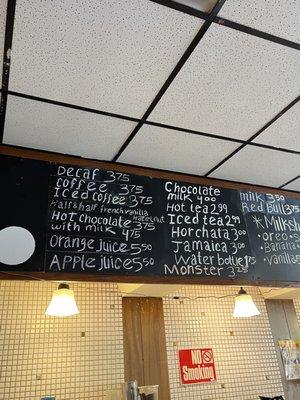 Decaf 375
coffee 375
Iced coffee 375
Half & half french vanilla Hazelnut
Hot chocolate 375
with milk 475
Orange juice 550
Apple juice 550
Chocolate
milk 400
Hot tea 299
Iced tea 299
Horchata 300
Jamaica 300
Water bottle 175
Monster 325
milk 350
Red Bull 375
*Milksh
• oreo
• Banana
• vanilla
NO
Smoking